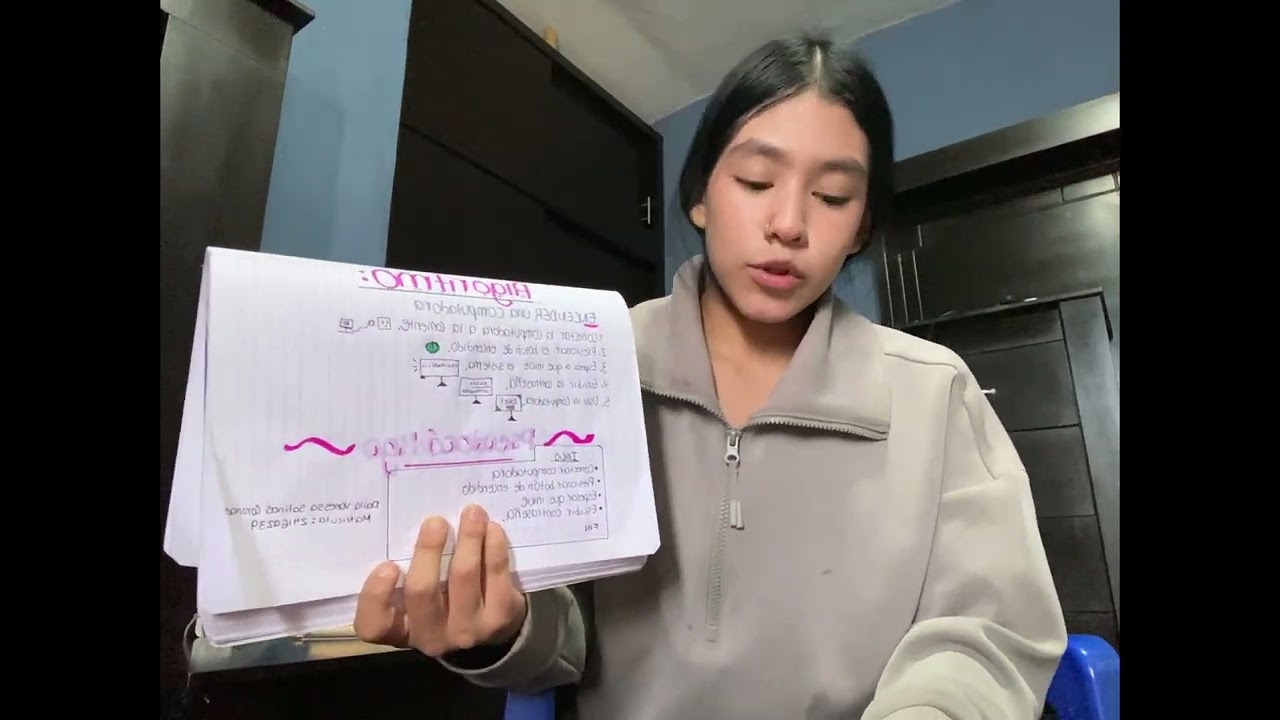 Algoritmo:
ENCENDER una computadora
1. Conectar la computadora a la corriente.
2. Presionar el botón de encendido.
3. Espera a que inicie el sistema.
4. Escribir la contraseña.
5. Usar la computadora.
Pseudocódigo
Inicio
• Conectar computadora
• Presionar botón de encendido
• Esperar que inicie
• Escribir contraseña.
FIN
Dalia Vanessa Salinas
Matricula: 24169239